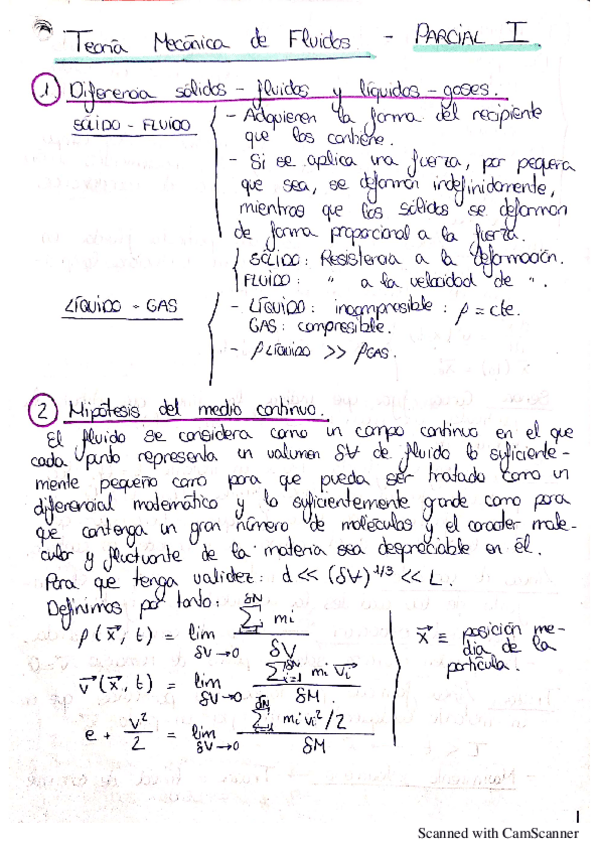 Teoría Mecánica de Fluidos - PARCIAL I
1 Diferencia sólidos - fluidos y líquidos - gases.
SÓLIDO - FLUIDO
- Adquieren la forma del recipiente
que los contiene.
- Si se aplica una fuerza, por pequeña
que sea, se deforman indefinidamente,
mientras que los sólidos se deforman
de forma proporcional a la fuerza.
SÓLIDO: Resistencia a la deformación.
FLUIDO: " a la velocidad de ".
LÍQUIDO - GAS
- LÍQUIDO: incompresible: ρ = cte.
GAS: compresible.
- ρ LÍQUIDO >> ρ GAS.
2 Hipótesis del medio continuo.
El fluido se considera como un campo continuo en el que
cada punto representa un volumen δV de fluido lo suficiente-
mente pequeño como para que pueda ser tratado como un
diferencial matemático y lo suficientemente grande como para
que contenga un gran número de moléculas y el carácter mole-
cular y fluctuante de la materia sea despreciable en él.
Para que tenga validez: d << (δV)^1/3 << L.
Definimos por tanto:
ρ(x⃗, t) = lim δV→0 Σ^δN_i mi / δV
v⃗(x⃗, t) = lim δV→0 Σ^δN_i=1 mi v⃗i / δM.
e + v²/2 = lim δV→0 Σ^δN_i mi vi²/2 / δM
x⃗ ≡ posición me-
dia de la
partícula.
1
Scanned with CamScanner